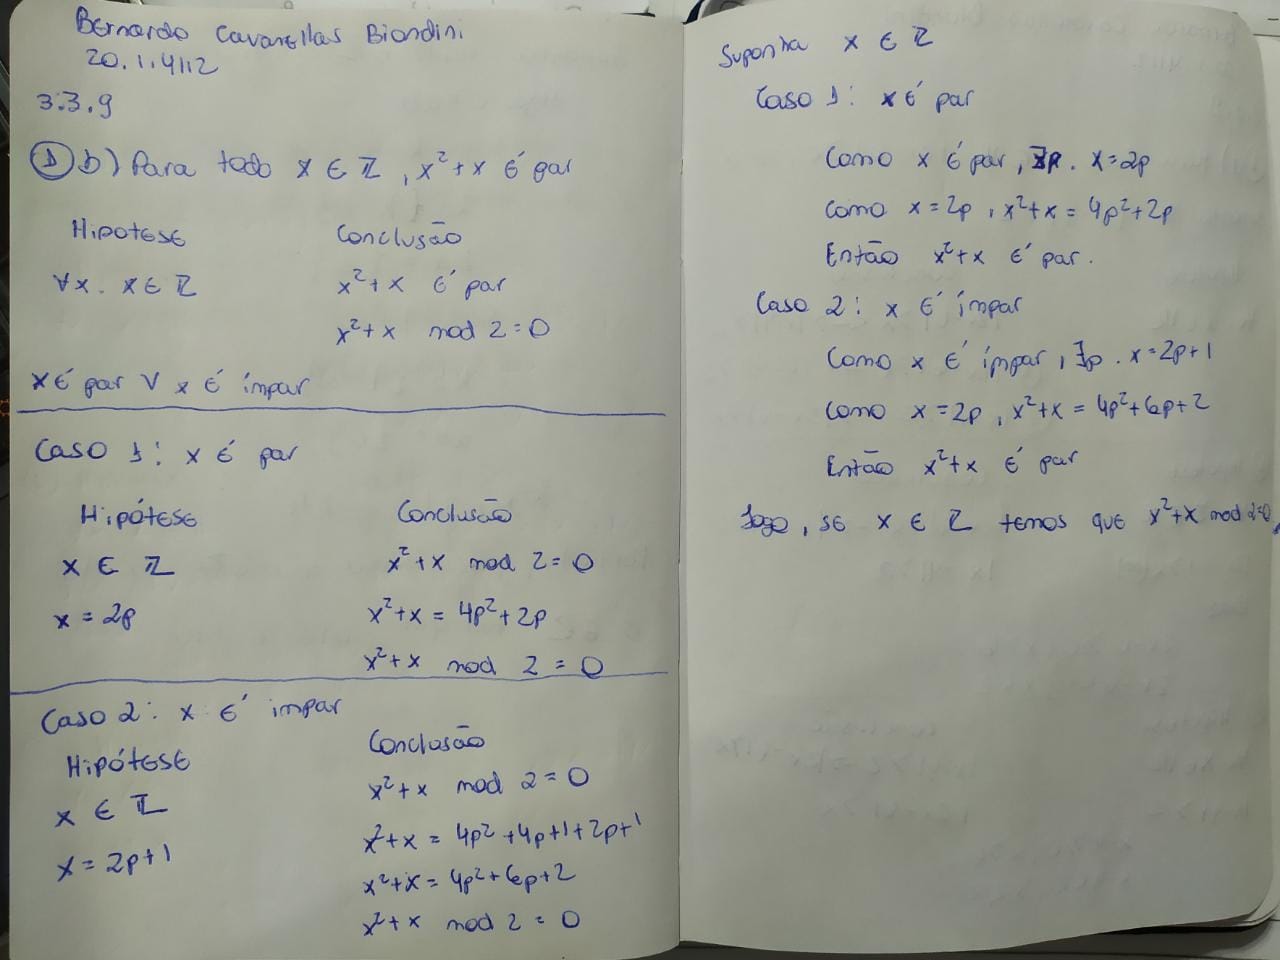 Bernardo Cavanellas Biondini
20.1.4112
3.3.9
① b) Para todo x ∈ ℤ, x²+x é par
Hipotese Conclusão
∀x. x ∈ ℤ x²+x é par
x²+x mod 2=0
x é par ∨ x é ímpar
Caso 1: x é par
Hipótese Conclusão
x ∈ ℤ x²+x mod 2=0
x = 2p x²+x = 4p²+2p
x²+x mod 2 = 0
Caso 2: x é impar
Hipótese Conclusão
x ∈ ℤ x²+x mod 2=0
x = 2p+1 x²+x = 4p²+4p+1+2p+1
x²+x = 4p²+6p+2
x²+x mod 2 = 0
Suponha x ∈ ℤ
Caso 1: x é par
Como x é par, ∃p. x=2p
Como x = 2p, x²+x = 4p²+2p
Então x²+x é par.
Caso 2: x é ímpar
Como x é ímpar, ∃p. x=2p+1
Como x=2p, x²+x = 4p²+6p+2
Então x²+x é par
Logo, se x ∈ ℤ temos que x²+x mod 2=0.